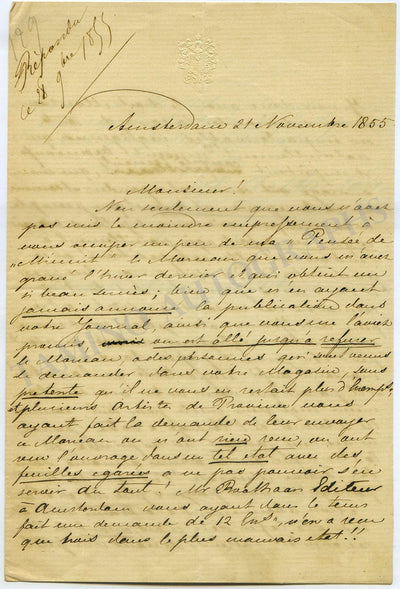 Répondu
ce 28 9bre 1855
Amsterdam 21 Novembre 1855
Monsieur!
Non seulement que vous n'avez
pas mis le moindre empressement à
vous occuper un peu de ma Pensée de
"Minuit" le Morceau que vous m'avez
gravé l'hiver dernier et qui obtient un
si beau succès; bien que en ayant
jamais annoncé la publication dans
votre Journal, ainsi que vous me l'aviez
promis, on est allé jusqu'à refuser
le Morceau, à des personnes qui sont venus
le demander dans votre Magasin, sous
pretexte qu'il ne vous en restait plus d'Exempl.
et plusieurs Artistes de Province vous
ayant fait la demande de leur envoyer
ce Morceau ou n'ont rien recu, ou ont
recu l'ouvrage dans un tel etat avec des
feuilles egarées à ne pas pouvoir s'en
servir du tout! Mr Editeur
à Amsterdam vous ayant dans le tems
fait une demande de 12 n'en a recu
que trois dans le plus mauvais etat!!